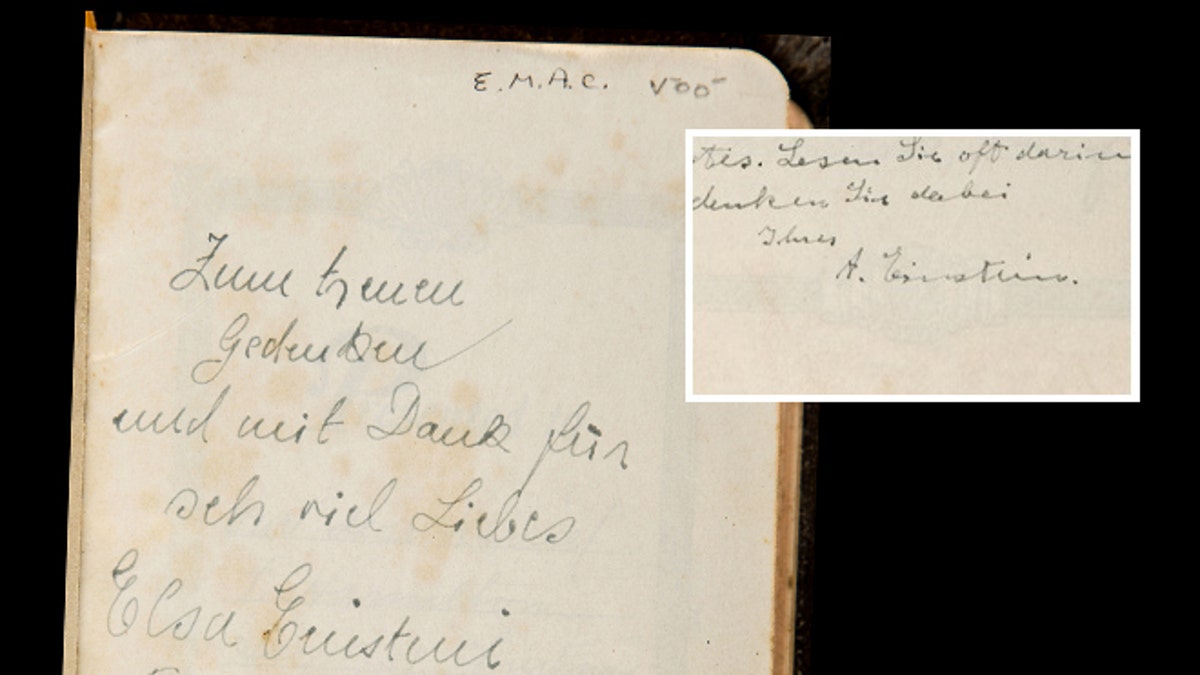 E.M.A.C. V-00-
Zum treuen
Gedenken
und mit Dank für
seh viel Liebes
Elsa Einstein
tes. Lesen Sie oft darin
denken Sie dabei
Ihres
A. Einstein.